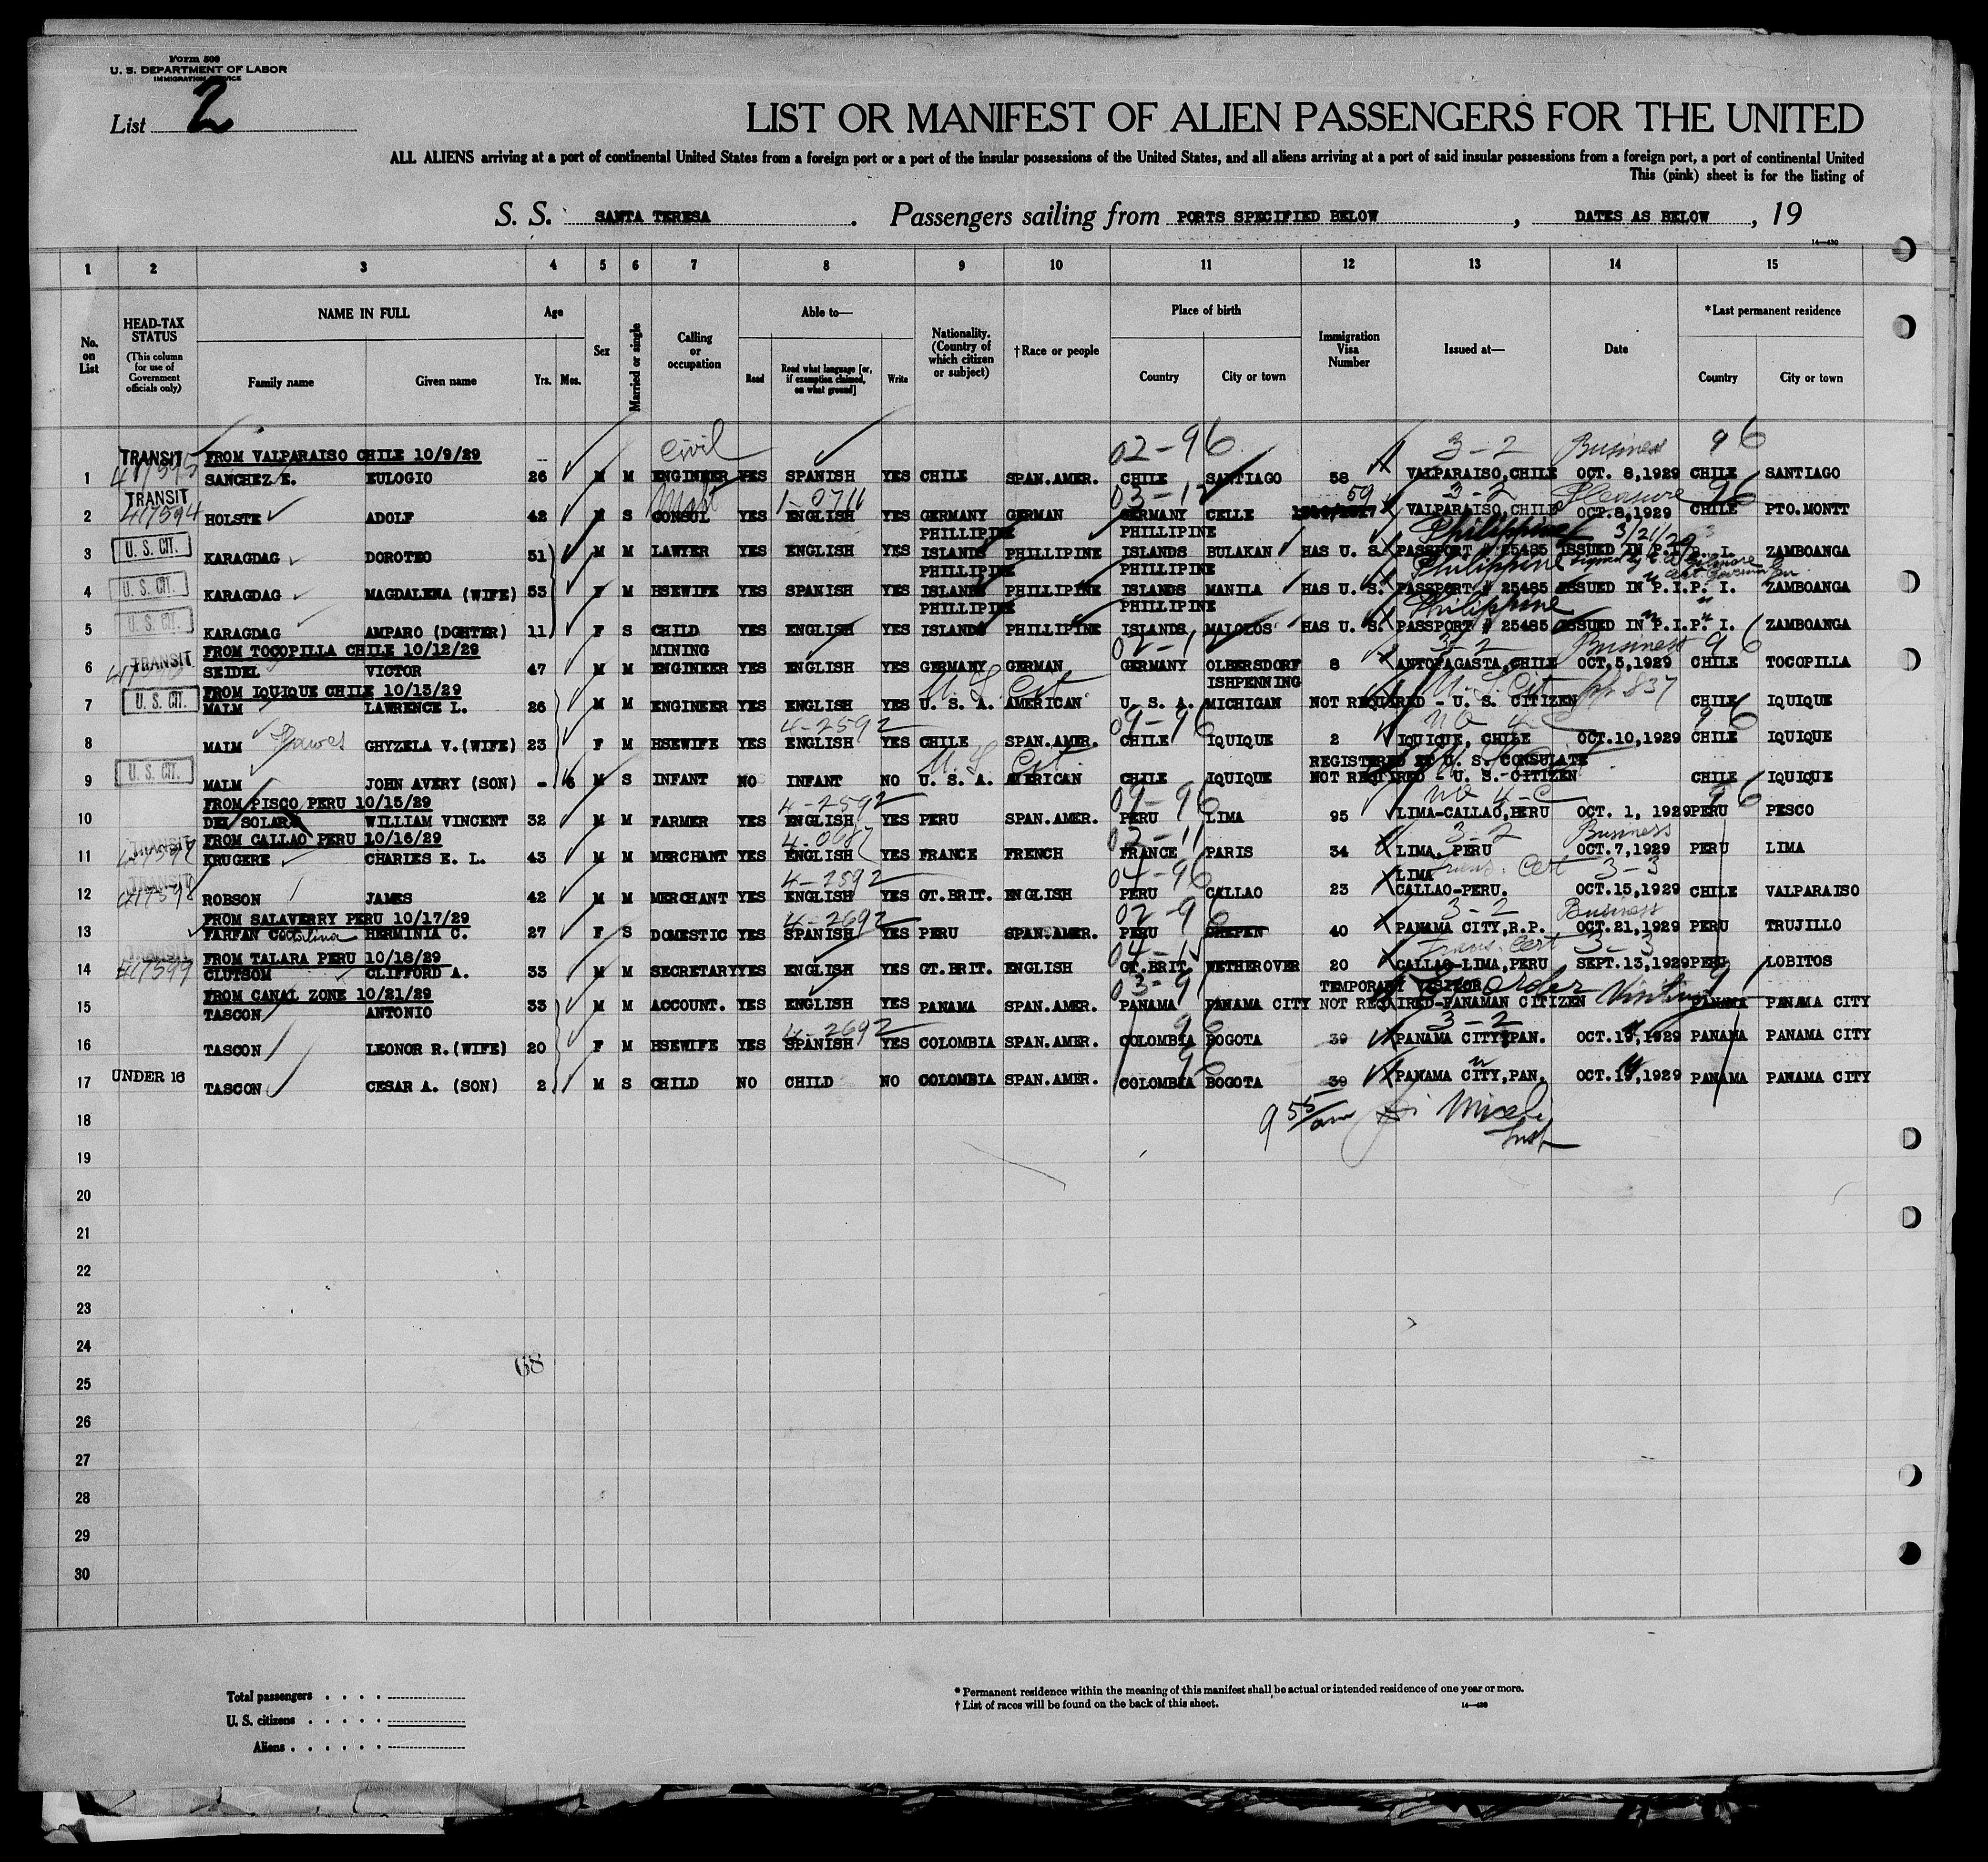 Form 500
U. S. DEPARTMENT OF LABOR
IMMIGRATION SERVICE
List 2
LIST OR MANIFEST OF ALIEN PASSENGERS FOR THE UNITED
ALL ALIENS arriving at a port of continental United States from a foreign port or a port of the insular possessions of the United States, and all aliens arriving at a port of said insular possessions from a foreign port, a port of continental United
This (pink) sheet is for the listing of
S. S. SANTA TERESA . Passengers sailing from PORTS SPECIFIED BELOW , DATES AS BELOW , 19
14—430
1 2 3 4 5 6 7 8 9 10 11 12 13 14 15
No. on List
HEAD-TAX STATUS (This column for use of Government officials only)
NAME IN FULL Family name Given name
Age Yrs. Mos.
Sex
Married or single
Calling or occupation
Able to— Read Read what language [or, if exemption claimed, on what ground] Write
Nationality. (Country of which citizen or subject)
†Race or people
Place of birth Country City or town
Immigration Visa Number
Issued at—
Date
*Last permanent residence Country City or town
TRANSIT FROM VALPARAISO CHILE 10/9/29 Civil 02-96 3-2 Business 96
1 SANCHEZ E. EULOGIO 26 M M ENGINEER YES SPANISH YES CHILE SPAN.AMER. CHILE SANTIAGO 58 VALPARAISO,CHILE OCT. 8,1929 CHILE SANTIAGO
TRANSIT 1-0711 03-1 59 3-2 Pleasure 96
2 417594 HOLSTE ADOLF 42 M S CONSUL YES ENGLISH YES GERMANY GERMAN GERMANY CELLE VALPARAISO,CHILE OCT.8,1929 CHILE PTO.MONTT
U. S. CIT. PHILLIPINE PHILLIPINE Philippine 3/21/29
3 KARAGDAG DOROTEO 51 M M LAWYER YES ENGLISH YES ISLANDS PHILLIPINE ISLANDS BULAKAN HAS U. S. PASSPORT # 25485 ISSUED IN P.I. P. I. ZAMBOANGA
U. S. CIT. PHILLIPINE PHILLIPINE Philippine
4 KARAGDAG MAGDALENA (WIFE) 53 F M HSEWIFE YES SPANISH YES ISLANDS PHILLIPINE ISLANDS MANILA HAS U. S. PASSPORT # 25485 ISSUED IN P.I. P. I. ZAMBOANGA
U. S. CIT. PHILLIPINE PHILLIPINE Philippine
5 KARAGDAG AMPARO (DGHTER) 11 F S CHILD YES ENGLISH YES ISLANDS PHILLIPINE ISLANDS MALOLOS HAS U. S. PASSPORT # 25485 ISSUED IN P.I. P. I. ZAMBOANGA
TRANSIT FROM TOCOPILLA CHILE 10/12/29 MINING 02-1 3-2 Business 96
6 SEIDEL VICTOR 47 M M ENGINEER YES ENGLISH YES GERMANY GERMAN GERMANY OLBERSDORF 8 ANTOFAGASTA,CHILE OCT,5,1929 CHILE TOCOPILLA
U. S. CIT. FROM IQUIQUE CHILE 10/13/29 U.S. Cit. ISHPENNING U.S. Cit 837
7 MALM LAWRENCE L. 26 M M ENGINEER YES ENGLISH YES U. S. A. AMERICAN U. S. A. MICHIGAN NOT REQUIRED - U. S. CITIZEN CHILE IQUIQUE
4-2592 09-96 NO 4-C 96
8 MALM GHYZELA V.(WIFE) 23 F M HSEWIFE YES ENGLISH YES CHILE SPAN.AMER. CHILE IQUIQUE 2 IQUIQUE, CHILE OCT.10,1929 CHILE IQUIQUE
U. S. CIT. U.S. Cit. REGISTERED AT U. S. CONSULATE
9 MALM JOHN AVERY (SON) - 6 M S INFANT NO INFANT NO U. S. A. AMERICAN CHILE IQUIQUE NOT REQUIRED - U. S. CITIZEN CHILE IQUIQUE
FROM PISCO PERU 10/15/29 4-2592 09-96 NO 4-C 96
10 DEL SOLAR WILLIAM VINCENT 32 M M FARMER YES ENGLISH YES PERU SPAN.AMER. PERU LIMA 95 LIMA-CALLAO,PERU OCT. 1, 1929 PERU PESCO
TRANSIT FROM CALLAO PERU 10/16/29 02-11 3-2 Business
11 KRUGERE CHARLES E. L. 43 M M MERCHANT YES ENGLISH YES FRANCE FRENCH FRANCE PARIS 34 LIMA, PERU OCT.7,1929 PERU LIMA
TRANSIT 4-2592 04-96 LIMA Trans. Cert 3-3
12 417598 ROBSON JAMES 42 M M MERCHANT YES ENGLISH YES GT.BRIT. ENGLISH PERU CALLAO 23 CALLAO-PERU. OCT.15,1929 CHILE VALPARAISO
FROM SALAVERRY PERU 10/17/29 4-2692 02-96 3-2 Business
13 FARFAN Catalina HERMINIA C. 27 F S DOMESTIC YES SPANISH YES PERU SPAN.AMER. PERU CHEPEN 40 PANAMA CITY,R.P. OCT.21,1929 PERU TRUJILLO
TRANSIT FROM TALARA PERU 10/18/29 04-15 Trans. Cert 3-3
14 417599 CLUTSOM CLIFFORD A. 33 M M SECRETARY YES ENGLISH YES GT.BRIT. ENGLISH GT.BRIT. WETHEROVER 20 CALLAO-LIMA,PERU SEPT.13,1929 PERU LOBITOS
FROM CANAL ZONE 10/21/29 03-9 TEMPORARY VISITOR
15 TASCON ANTONIO 33 M M ACCOUNT. YES ENGLISH YES PANAMA SPAN.AMER. PANAMA PANAMA CITY NOT REQUIRED-PANAMAN CITIZEN PANAMA PANAMA CITY
4-2692 96 3-2
16 TASCON LEONOR R.(WIFE) 20 F M HSEWIFE YES SPANISH YES COLOMBIA SPAN.AMER. COLOMBIA BOGOTA 39 PANAMA CITY, PAN. OCT.19,1929 PANAMA PANAMA CITY
96 "
17 UNDER 16 TASCON CESAR A. (SON) 2 M S CHILD NO CHILD NO COLOMBIA SPAN.AMER. COLOMBIA BOGOTA 39 PANAMA CITY,PAN. OCT.19,1929 PANAMA PANAMA CITY
18 9 55/am
19
20
21
22
23
24
68
25
26
27
28
29
30
Total passengers . . . .
U. S. citizens . . . . .
Aliens . . . . . .
* Permanent residence within the meaning of this manifest shall be actual or intended residence of one year or more.
† List of races will be found on the back of this sheet. 14—430